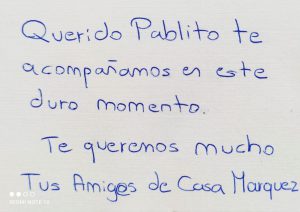 Querido Pablito te
acompañamos en este
duro momento.
Te queremos mucho
Tus Amigos de Casa Marquez
REDMI NOTE